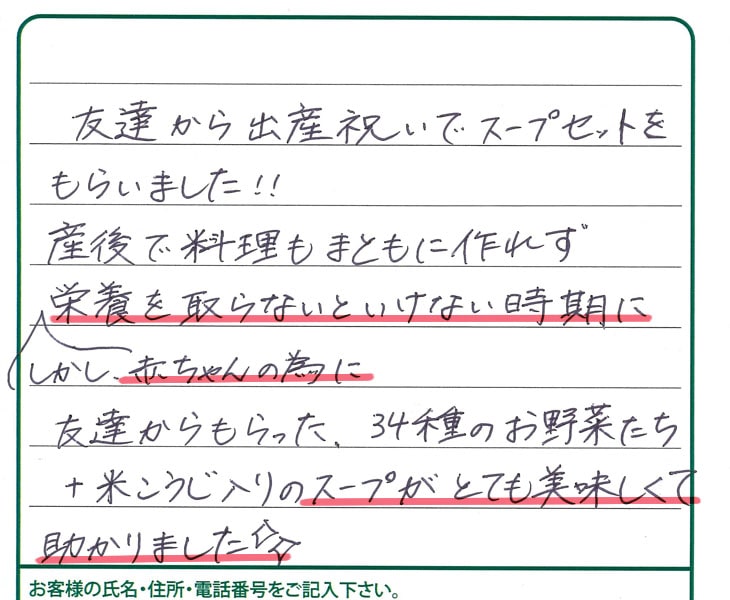 友達から出産祝いでスープセットを
もらいました!!
産後で料理もまともに作れず
栄養を取らないといけない時期に
しかし、赤ちゃんの為に
友達からもらった、34種のお野菜たち
+米こうじ入りのスープがとても美味しくて
助かりました☆
お客様の氏名・住所・電話番号をご記入下さい。